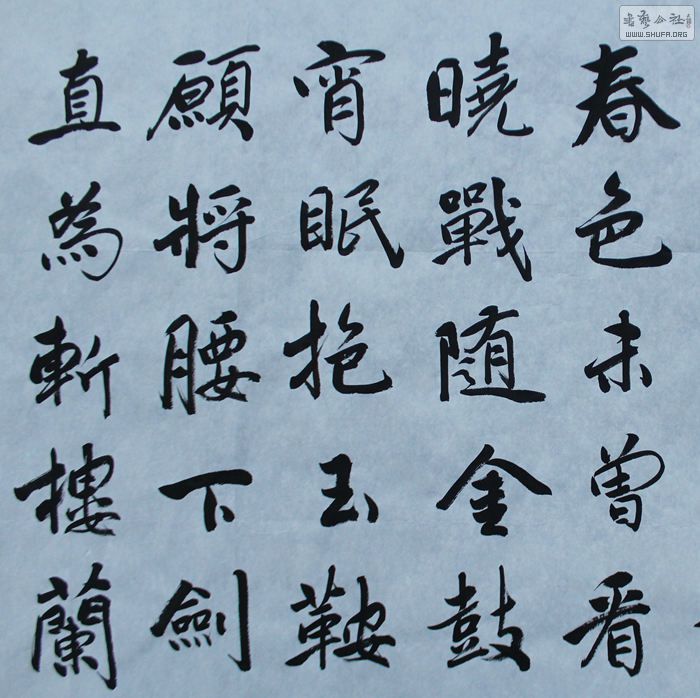 春色未曾看
曉戰随金鼓
宵眠抱玉鞍
願將腰下劍
直為斬樓蘭
書藝公社
WWW.SHUFA.ORG